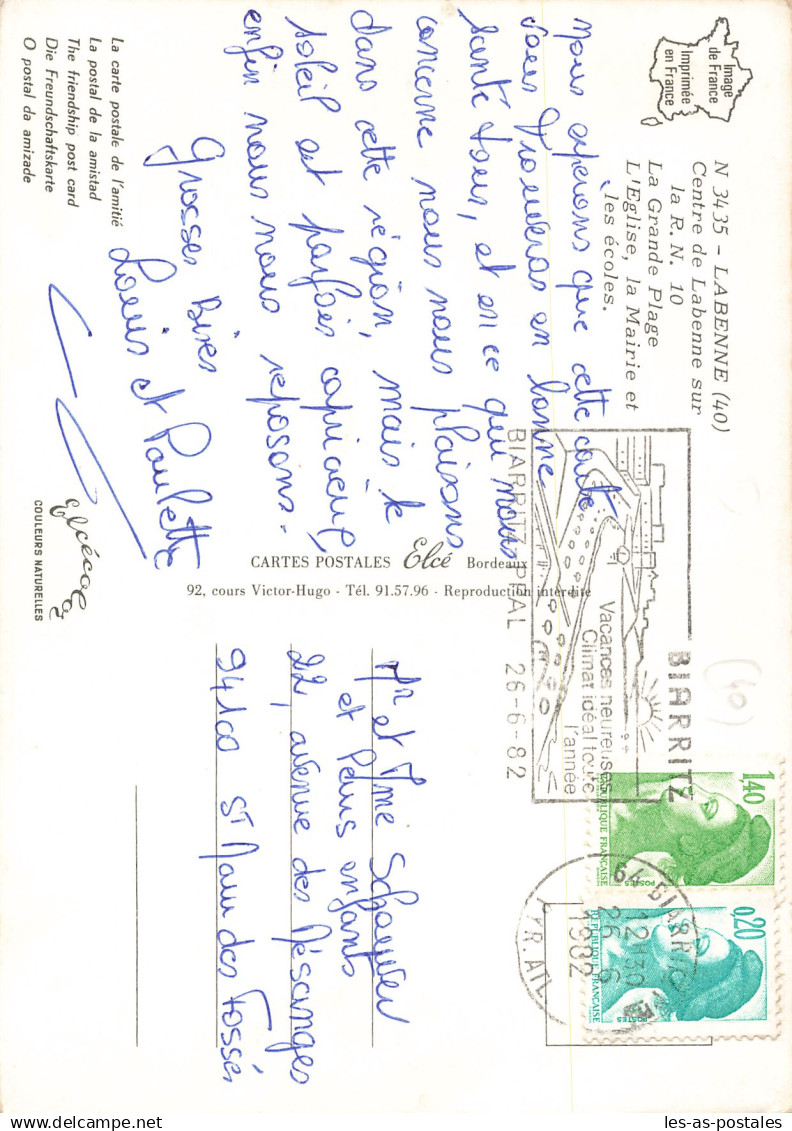 Image
de France
Imprimée
en France
N 3435 - LABENNE (40)
Centre de Labenne sur
la R. N. 10
La Grande Plage
L'Eglise, la Mairie et
les écoles.
nous espérons que cette carte
vous trouveras en bonne
santé tous, et en ce qui nous
concerne nous nous plaisons
dans cette région, mais le
soleil est parfois capricieux,
enfin nous nous reposons.
Grosses Bises
Louis et Paulette
La carte postale de l'amitié
La postal de la amistad
The friendship post card
Die Freundschaftskarte
O postal da amizade
Elcécolor
COULEURS NATURELLES
CARTES POSTALES Elcé Bordeaux
92, cours Victor-Hugo - Tél. 91.57.96 - Reproduction interdite
BIARRITZ
Vacances heureuses
Climat idéal toute
l'année
BIARRITZ PPAL 26-6-82
1,40
REPUBLIQUE FRANÇAISE
POSTES
0,20
REPUBLIQUE FRANÇAISE
POSTES
64 BIARRITZ
12H30
26-6
1982
PYR. ATL
(40)
Mr et Mme
et leurs enfants
22, avenue des Mésanges
94100 St Maur des Fossés
les-as-postales